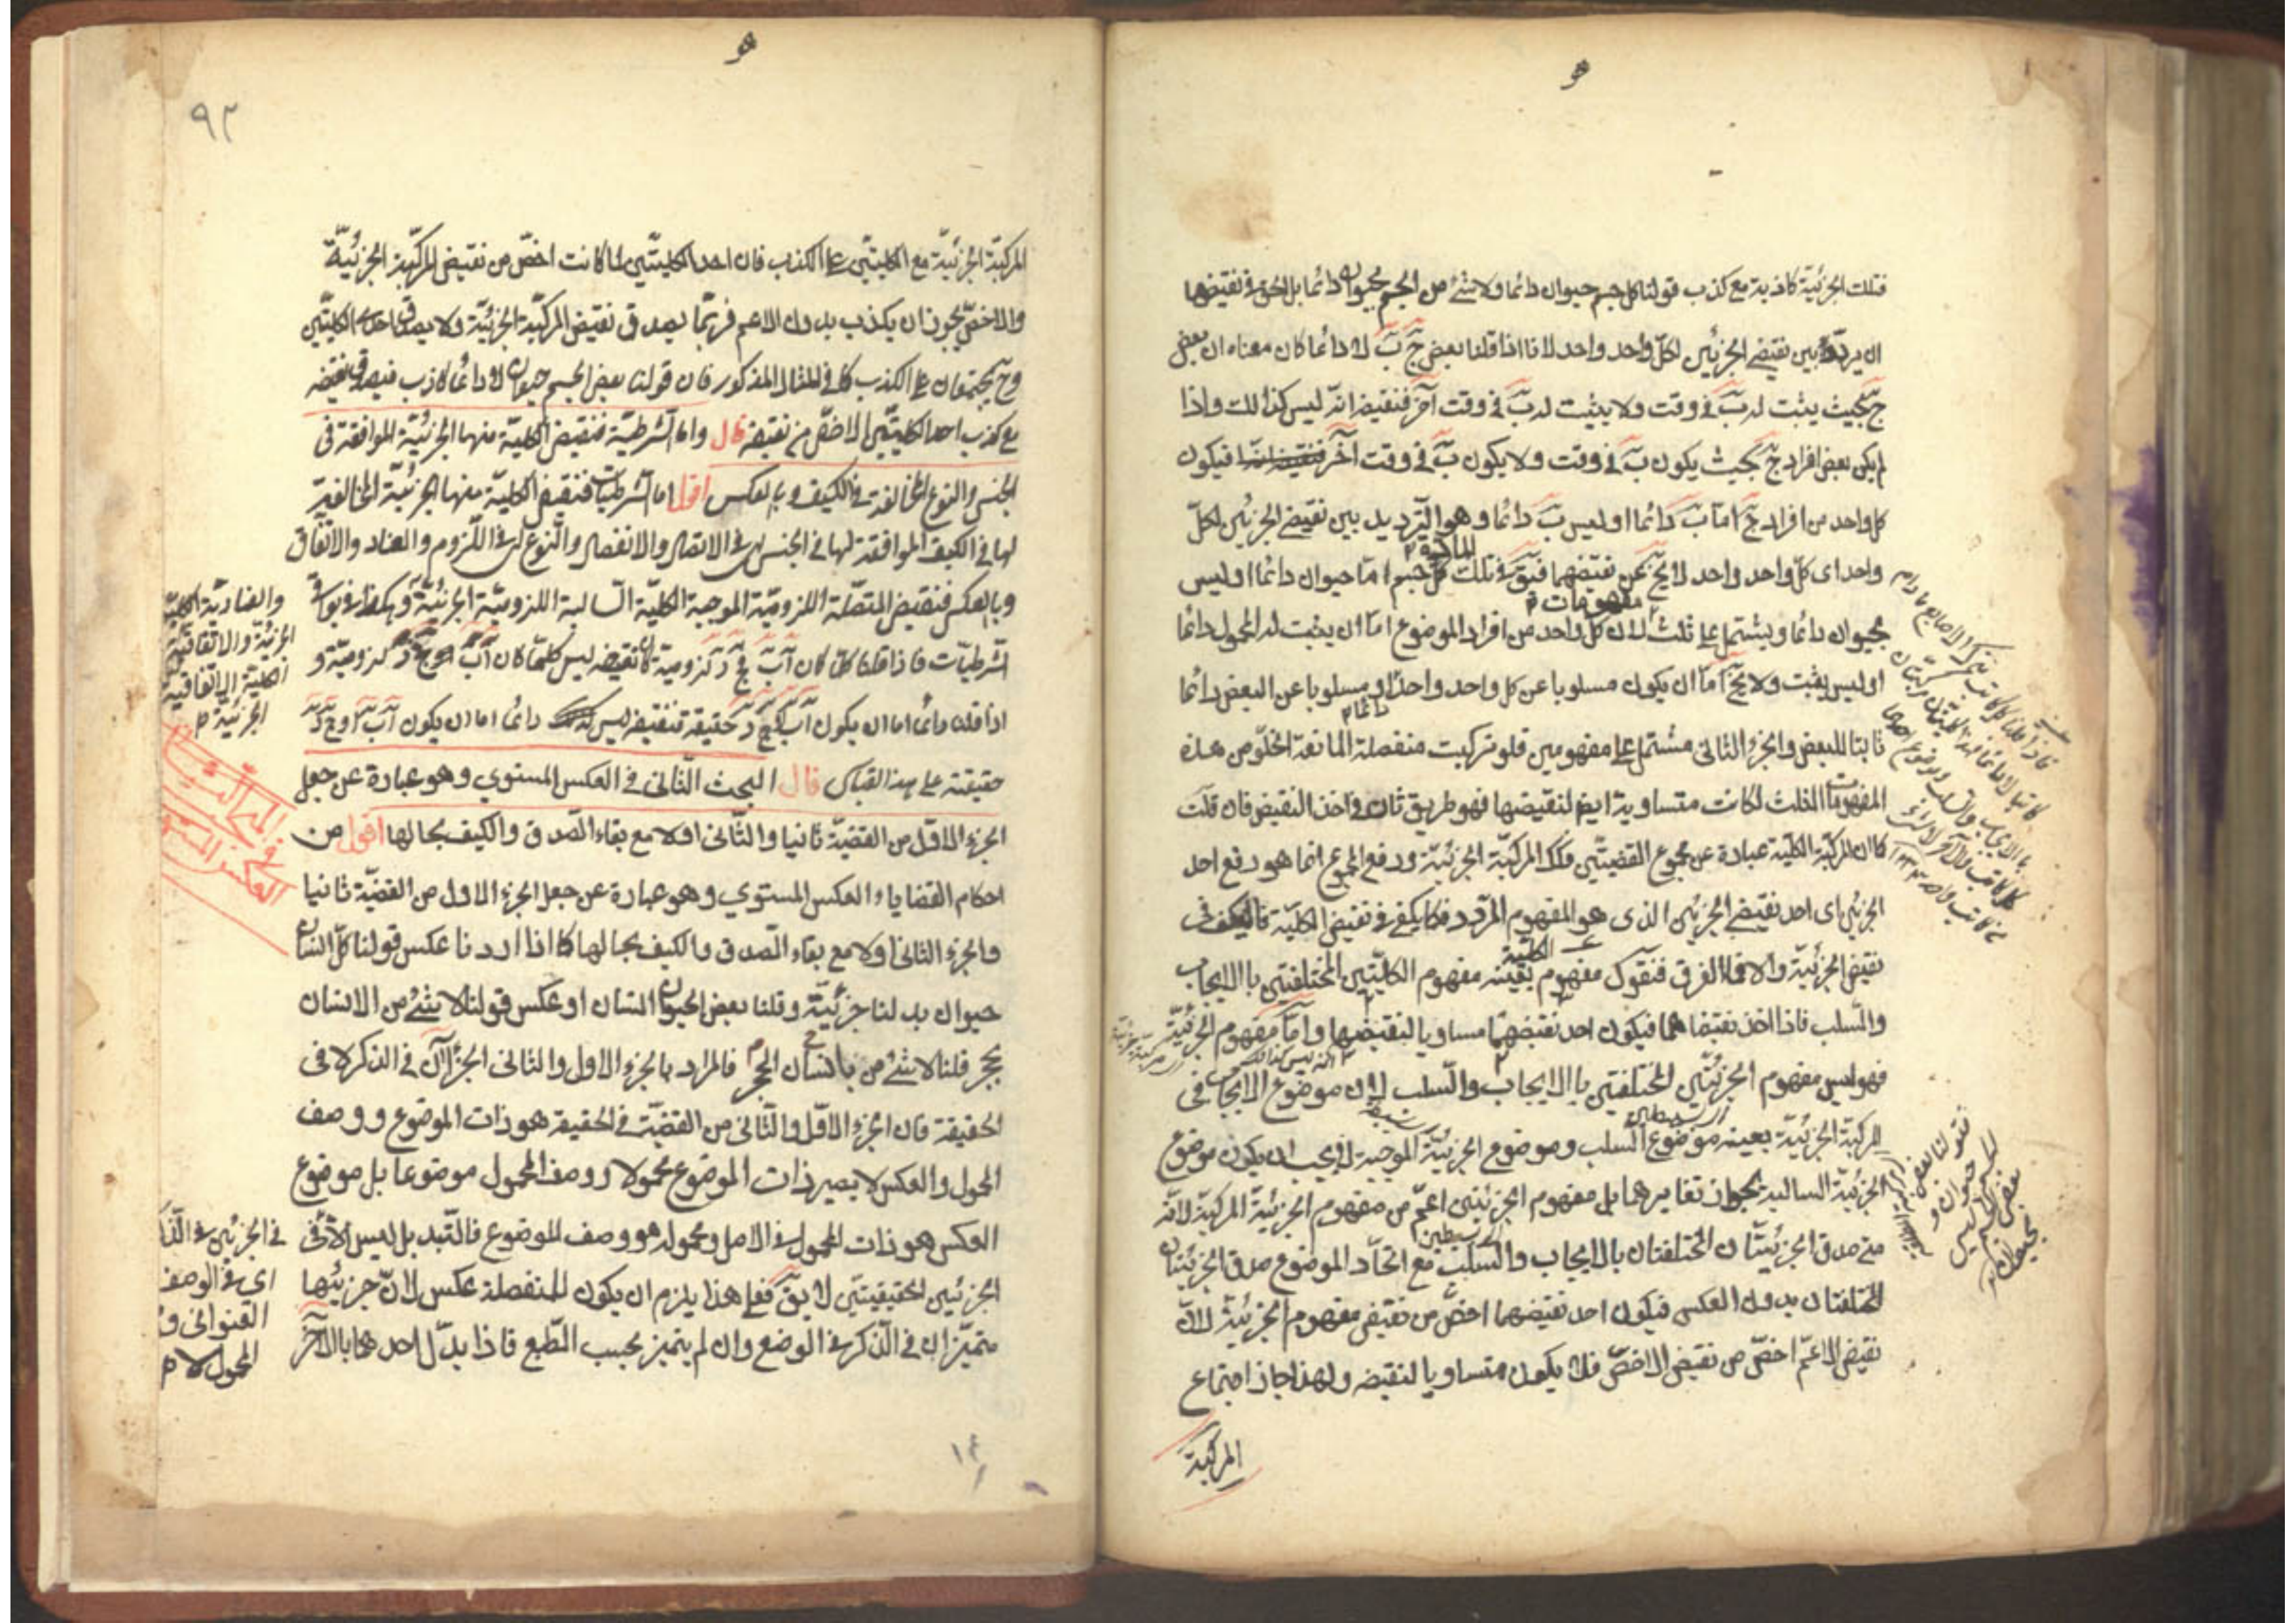 هو
فتلك الجزئية كاذبة مع كذب قولنا كل جسم حيوان دائما ولا شئ من الجسم بحيوان دائما بل الحق في نقيضها
ان يردد بين نقيضي الجزئين لكل واحد واحد لانا اذا قلنا بعض ج ب لا دائما كان معناه ان بعض
ج بحيث يثبت له ب في وقت ولا يثبت له ب في وقت آخر فنقيضه انه ليس كذلك واذا
لم يكن بعض افراد ج بحيث يكون ب في وقت ولا يكون ب في وقت آخر فيكون
كل واحد من افراد ج اما ب دائما او ليس ب دائما وهو الترديد بين نقيضي الجزئين لكل
واحد اى كل واحد واحد لا يخ عن نقيضهما فيق في تلك المادة كل جسم اما حيوان دائما او ليس
بحيوان دائما ويشتمل على ثلث مفهومات لان كل واحد من افراد الموضوع اما ان يثبت له المحمول دائما
او ليس يثبت ولا يخ اما ان يكون مسلوبا عن كل واحد واحد او مسلوبا عن البعض دائما
ثابتا للبعض والجزء الثانى مشتمل على مفهومين فلو تركبت منفصلة المانعة الخلو من هذه
المفهومات الثلث لكانت متساوية ايضا لنقيضها فهو طريق ثان في اخذ النقيض فان قلت
كما ان المركبة الكلية عبارة عن مجموع القضيتين فكذا المركبة الجزئية ورفع المجموع انما هو رفع احد
الجزئين اى احد نقيضي الجزئين الذى هو المفهوم المردد فكما يكفى في نقيض الكلية فاليكف في
نقيض الجزئية والا فما الفرق فنقول مفهوم الكلية بعينه مفهوم الكليتين المختلفتين بالايجاب
والسلب فاذا اخذ نقيضاهما فيكون احد نقيضهما مساويا لنقيضها واما مفهوم الجزئية
فهو ليس مفهوم الجزئيتين المختلفتين بالايجاب والسلب لان موضوع الايجاب في
المركبة الجزئية بعينه موضوع السلب وموضوع الجزئية الموجبة لا يجب ان يكون موضوع
الجزئية السالبة لجواز تغايرهما بل مفهوم الجزئيتين اعم من مفهوم الجزئية المركبة لانه
متى صدق الجزئيتان المختلفتان بالايجاب والسلب مع اتحاد الموضوع صدق الجزئيتان
المختلفتان بدون العكس فيكون احد نقيضهما اخص من نقيض مفهوم الجزئية لان
نقيض الاعم اخص من نقيض الاخص فلا يكون متساويا لنقيضه ولهذا جاز اجتماع
المركبة
هو
٩٣
المركبة الجزئية مع الكليتين على الكذب فان احد الكليتين لما كانت اخص من نقيض المركبة الجزئية
والاخص يجوز ان يكذب بدون الاعم فربما يصدق نقيض المركبة الجزئية ولا يصدق احدى الكليتين
وح يجتمعان على الكذب كما في المثال المذكور فان قولنا بعض الجسم حيوان لا دائما كاذب فيصدق نقيضه
مع كذب احد الكليتين الاخص من نقيضه قال واما الشرطية فنقيض الكلية منها الجزئية الموافقة في
الجنس والنوع المخالفة في الكيف وبالعكس اقول اما الشرطيات فنقيض الكلية منها الجزئية المخالفة
لها في الكيف الموافقة لها في الجنس اى في الاتصال والانفصال والنوع اى في اللزوم والعناد والاتفاق
وبالعكس فنقيض المتصلة اللزومية الموجبة الكلية السالبة اللزومية الجزئية وهكذا في بواقى
الشرطيات فاذا قلنا كلما كان آب فج د لزومية كان نقيضه ليس كلما كان آب فج د لزومية و
اذا قلنا دائما اما ان يكون آب او ج د حقيقة فنقيضه ليس دائما اما ان يكون آب او ج د
حقيقته على هذا القياس قال البحث الثانى في العكس المستوي وهو عبارة عن جعل
الجزء الاول من القضية ثانيا والثانى اولا مع بقاء الصدق والكيف بحالها اقول من
احكام القضايا العكس المستوي وهو عبارة عن جعل الجزء الاول من القضية ثانيا
والجزء الثانى اولا مع بقاء الصدق والكيف بحالها كما اذا اردنا عكس قولنا كل انسان
حيوان بدلنا جزئيه وقلنا بعض الحيوان انسان او عكس قولنا لا شئ من الانسان
بحجر قلنا لا شئ من الحجر بانسان فالمراد بالجزء الاول والثانى الجزآن في الذكر لا في
الحقيقة فان الجزء الاول والثانى من القضية في الحقيقة هو ذات الموضوع ووصف
المحمول والعكس لا يصير ذات الموضوع محمولا ووصف المحمول موضوعا بل موضوع
العكس هو ذات المحمول في الاصل ومحموله هو وصف الموضوع فالتبدل ليس الا في
الجزئين الحقيقيتين لا يق فعلى هذا يلزم ان يكون للمنفصلة عكس لان جزئيها
متميزان في الذكر في الوضع وان لم يتميز بحسب الطبع فاذا بدل احدهما بالآخر
والعنادية الكلية
الجزئية والاتفاقية
الكلية الاتفاقية
الجزئية م
البحث الثانى
في
العكس المستوى
في الجزئين في الذكر
اى في الوصف
العنوانى و
المحمول لا م